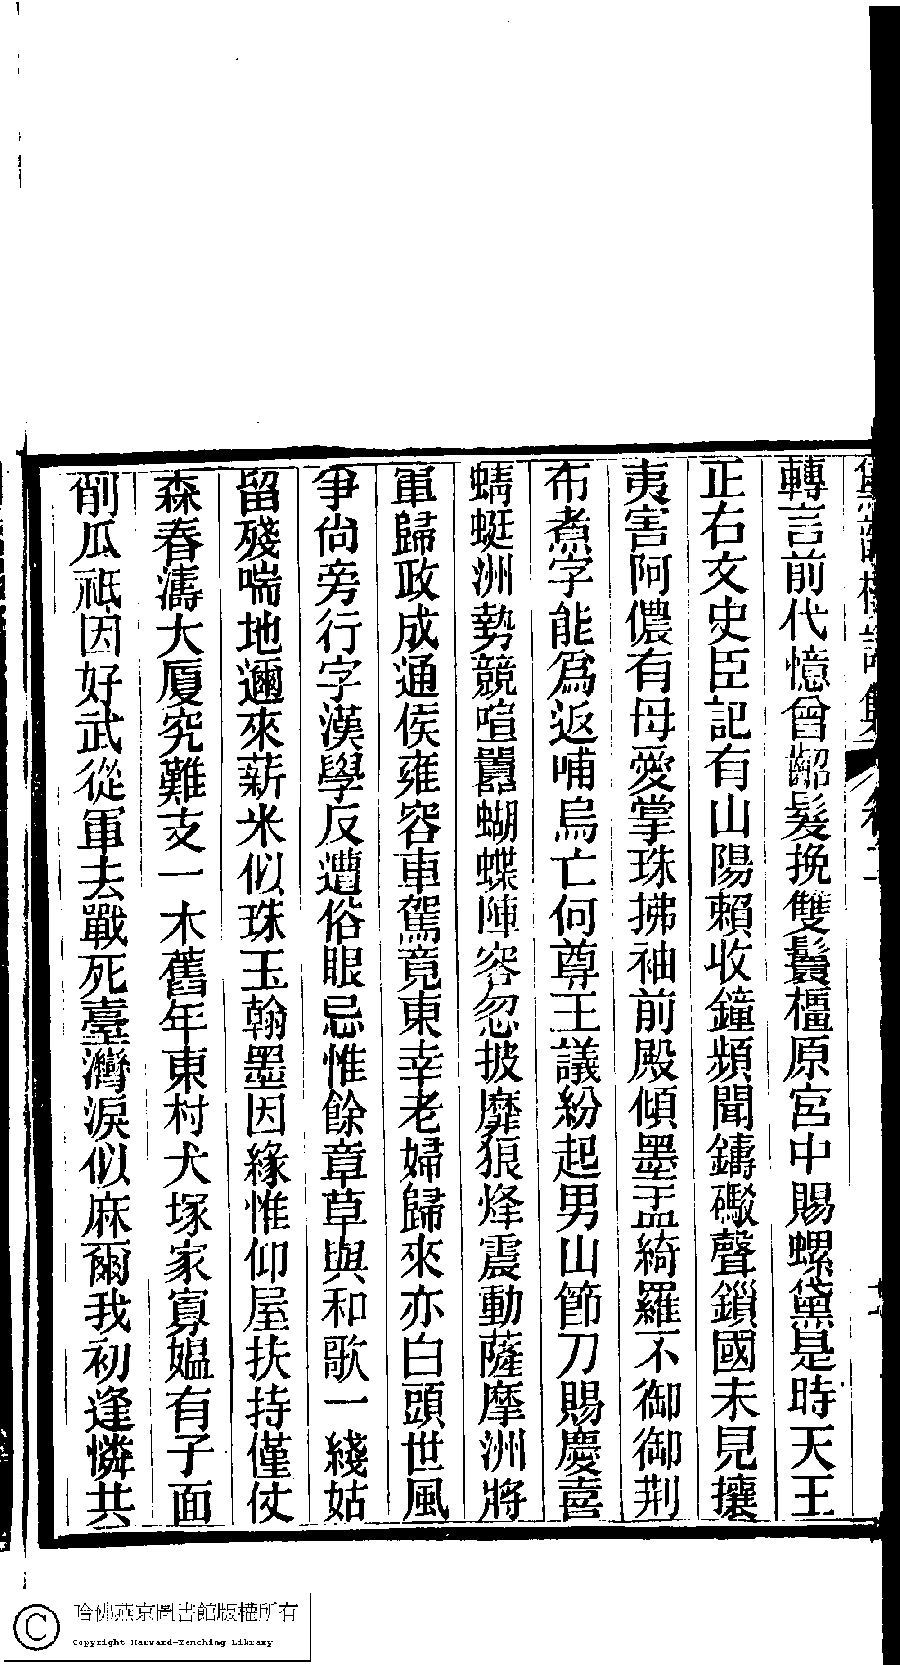 轉言前代憶曾齠髮挽雙鬟橿原宮中賜螺黛是時天王
正右文史臣記有山陽賴收鐘頻聞鑄礮聲鎖國未見攘
夷害阿儂有母愛掌珠拂袖前殿傾墨盂綺羅不御御荆
布煮字能爲返哺烏亡何尊王議紛起男山節刀賜慶喜
蜻蜓洲勢競喧囂蝴蝶陣容忽披靡狼烽震動薩摩洲將
軍歸政成通侯雍容車駕竟東幸老婦歸來亦白頭世風
爭尙旁行字漢學反遭俗眼忌惟餘章草與和歌一綫姑
留殘喘地邇來薪米似珠玉翰墨因緣惟仰屋扶持僅仗
森春濤大厦究難支一木舊年東村犬塚家寡媼有子面
削瓜祗因好武從軍去戰死臺灣淚似麻爾我初逢憐共
哈佛燕京圖書館版權所有
Copyright Harvard-Yenching Library